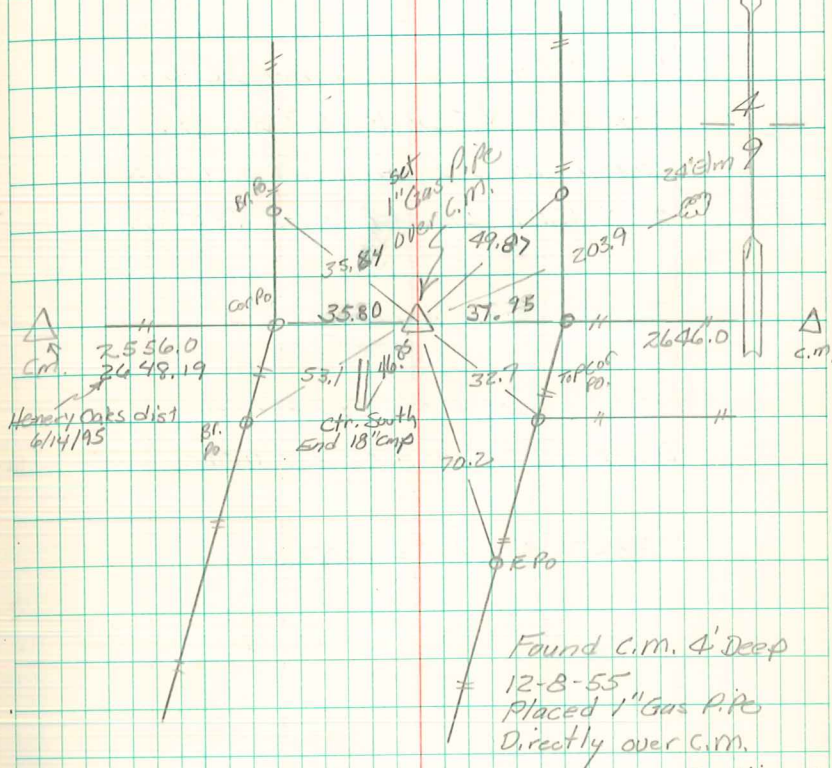 4
9
24" Elm
set
1" Gas Pipe
over C.M.
Br. Po.
35.84
49.87
203.9
Cor Po
35.80
37.95
C.M.
2556.0
2648.19
2646.0
C.M.
Henery Oaks dist
6/14/95
53.1
16.8
32.7
Top Cor
Po.
Br.
Po
Ctr. South
End 18" Cmp
70.2
E Po
Found C.M. 4' Deep
12-8-55
Placed 1" Gas Pipe
Directly over C.M.